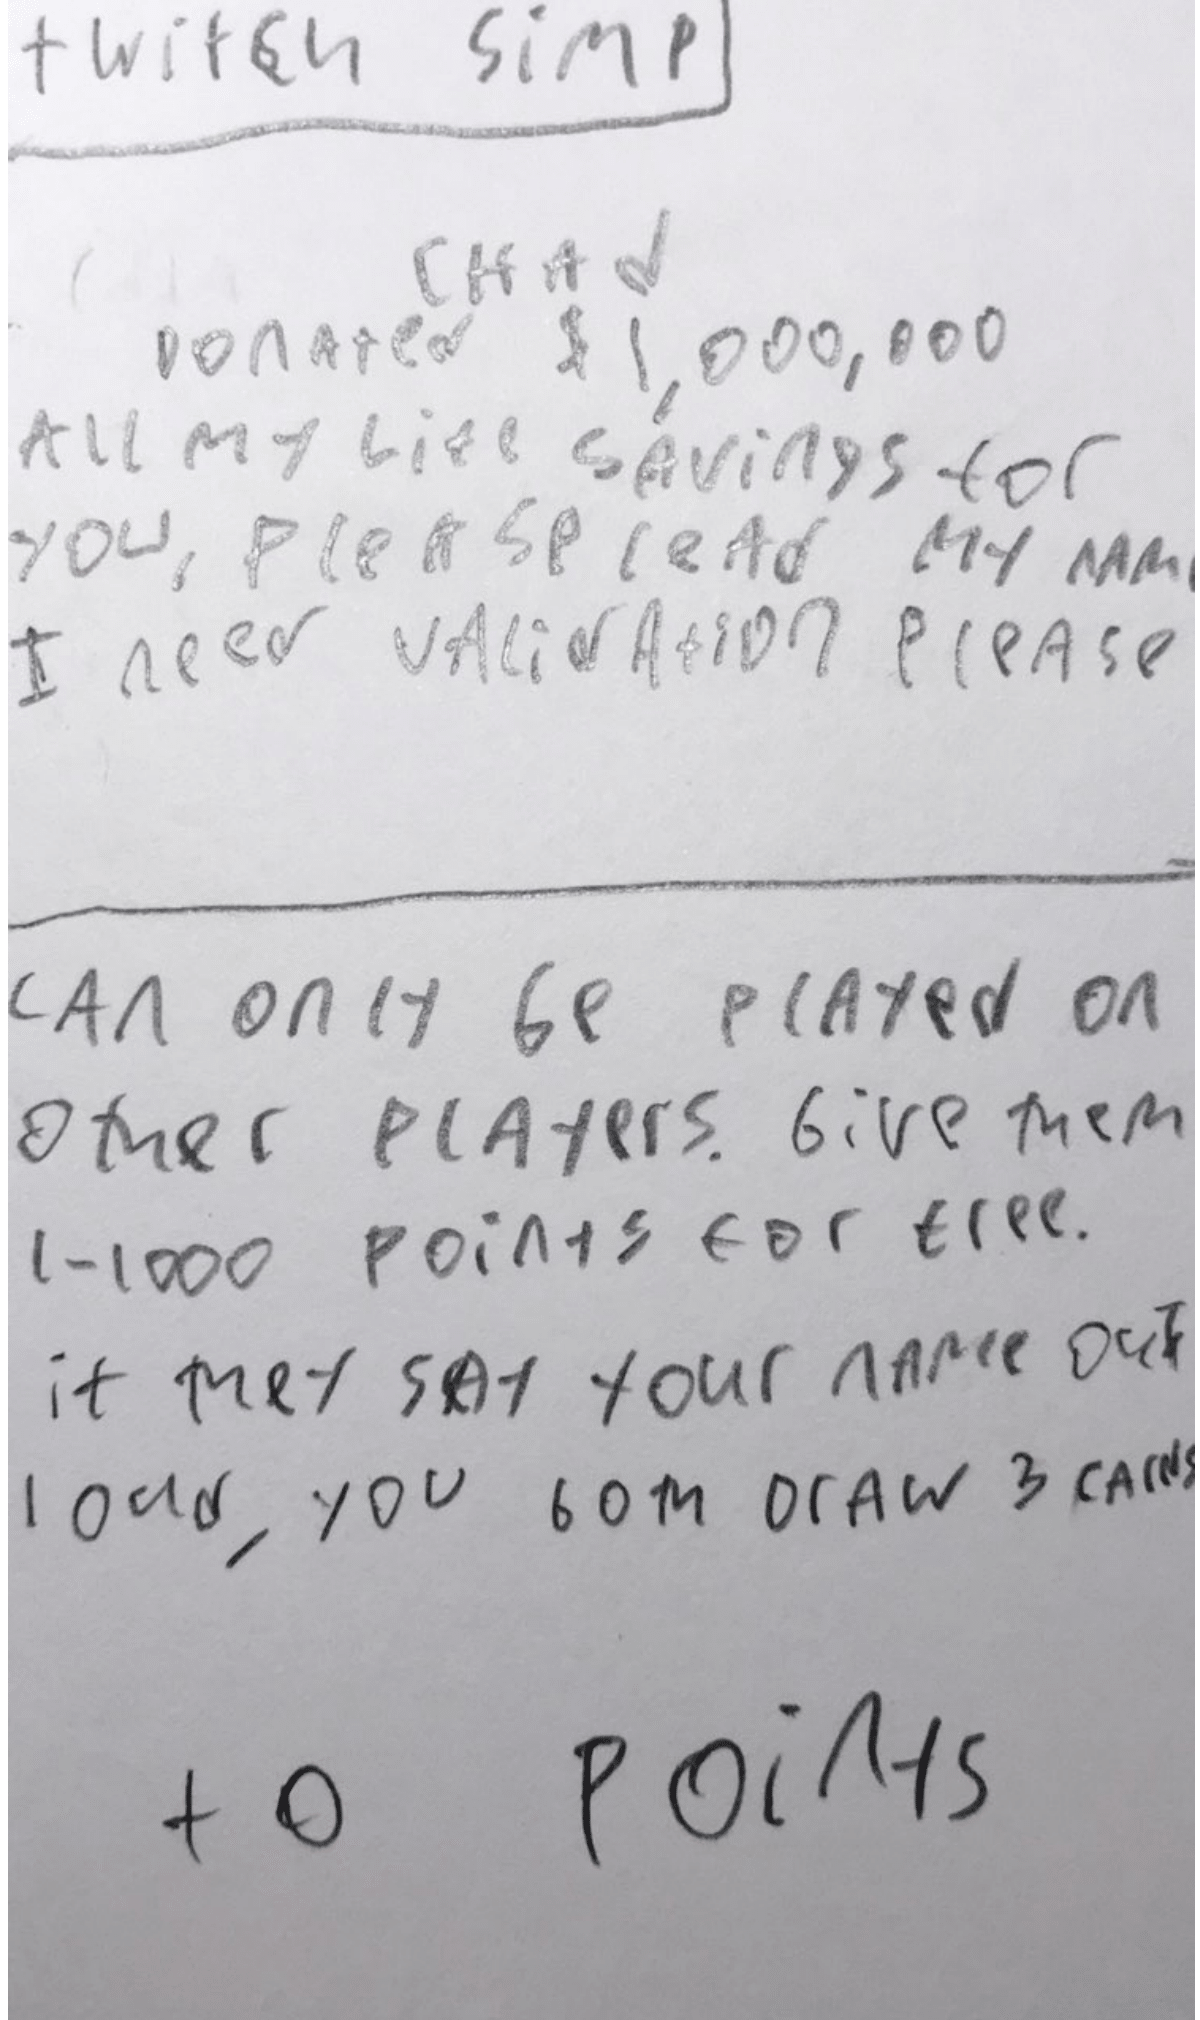 twitch simp
CHAd
DONATed $1,000,000
All My Life SAVings for
YOU, PleASe reAd MY NAMe
I need VALidAtiON PleASe
CAN only be PlAYed on
Other PlAYers. Give them
1-1000 Points for free.
if they SAY Your NAMe Out
loud, YOU both DrAW 3 CARds
+0 POiNts